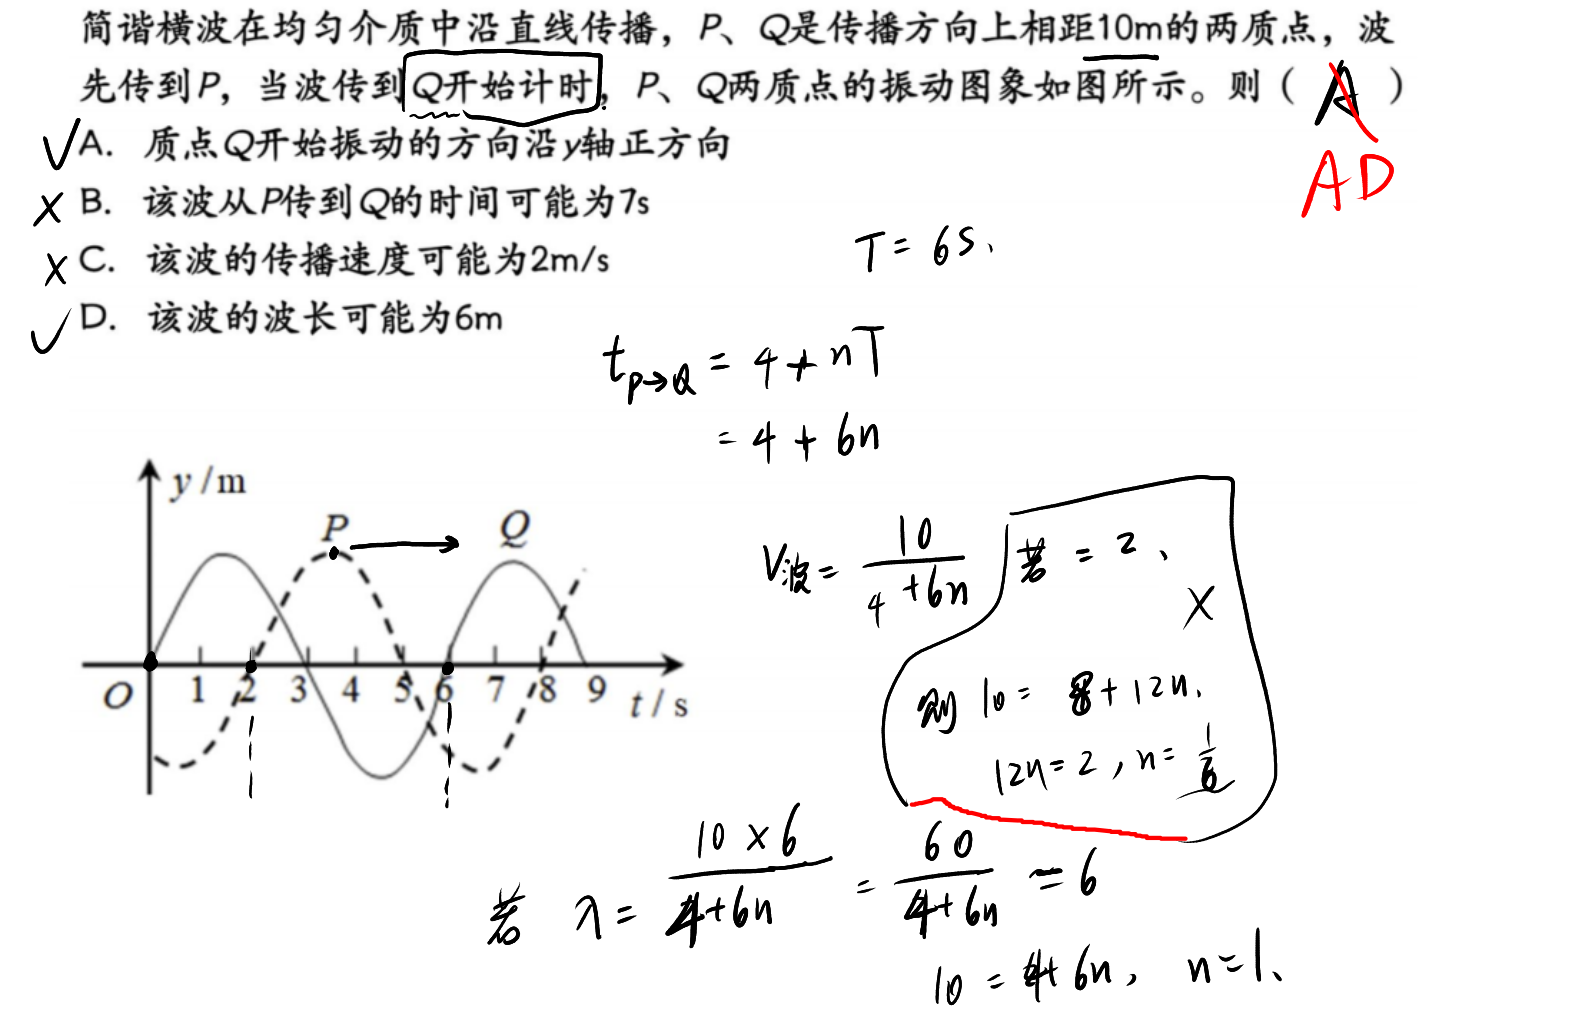 简谐横波在均匀介质中沿直线传播，P、Q是传播方向上相距10m的两质点，波
先传到P，当波传到Q开始计时，P、Q两质点的振动图象如图所示。则（ A ）
AD
√A. 质点Q开始振动的方向沿y轴正方向
×B. 该波从P传到Q的时间可能为7s
×C. 该波的传播速度可能为2m/s
√D. 该波的波长可能为6m
T = 6s、
t P→Q = 4 + nT
= 4 + 6n
V波 = 10 / (4 + 6n)
若 = 2、
×
则 10 = 8 + 12n.
12n = 2 , n = 1/6
y / m
P
Q
O 1 2 3 4 5 6 7 8 9 t / s
若 λ = 10 × 6 / (4 + 6n) = 60 / (4 + 6n) = 6
10 = 4 + 6n, n = 1、